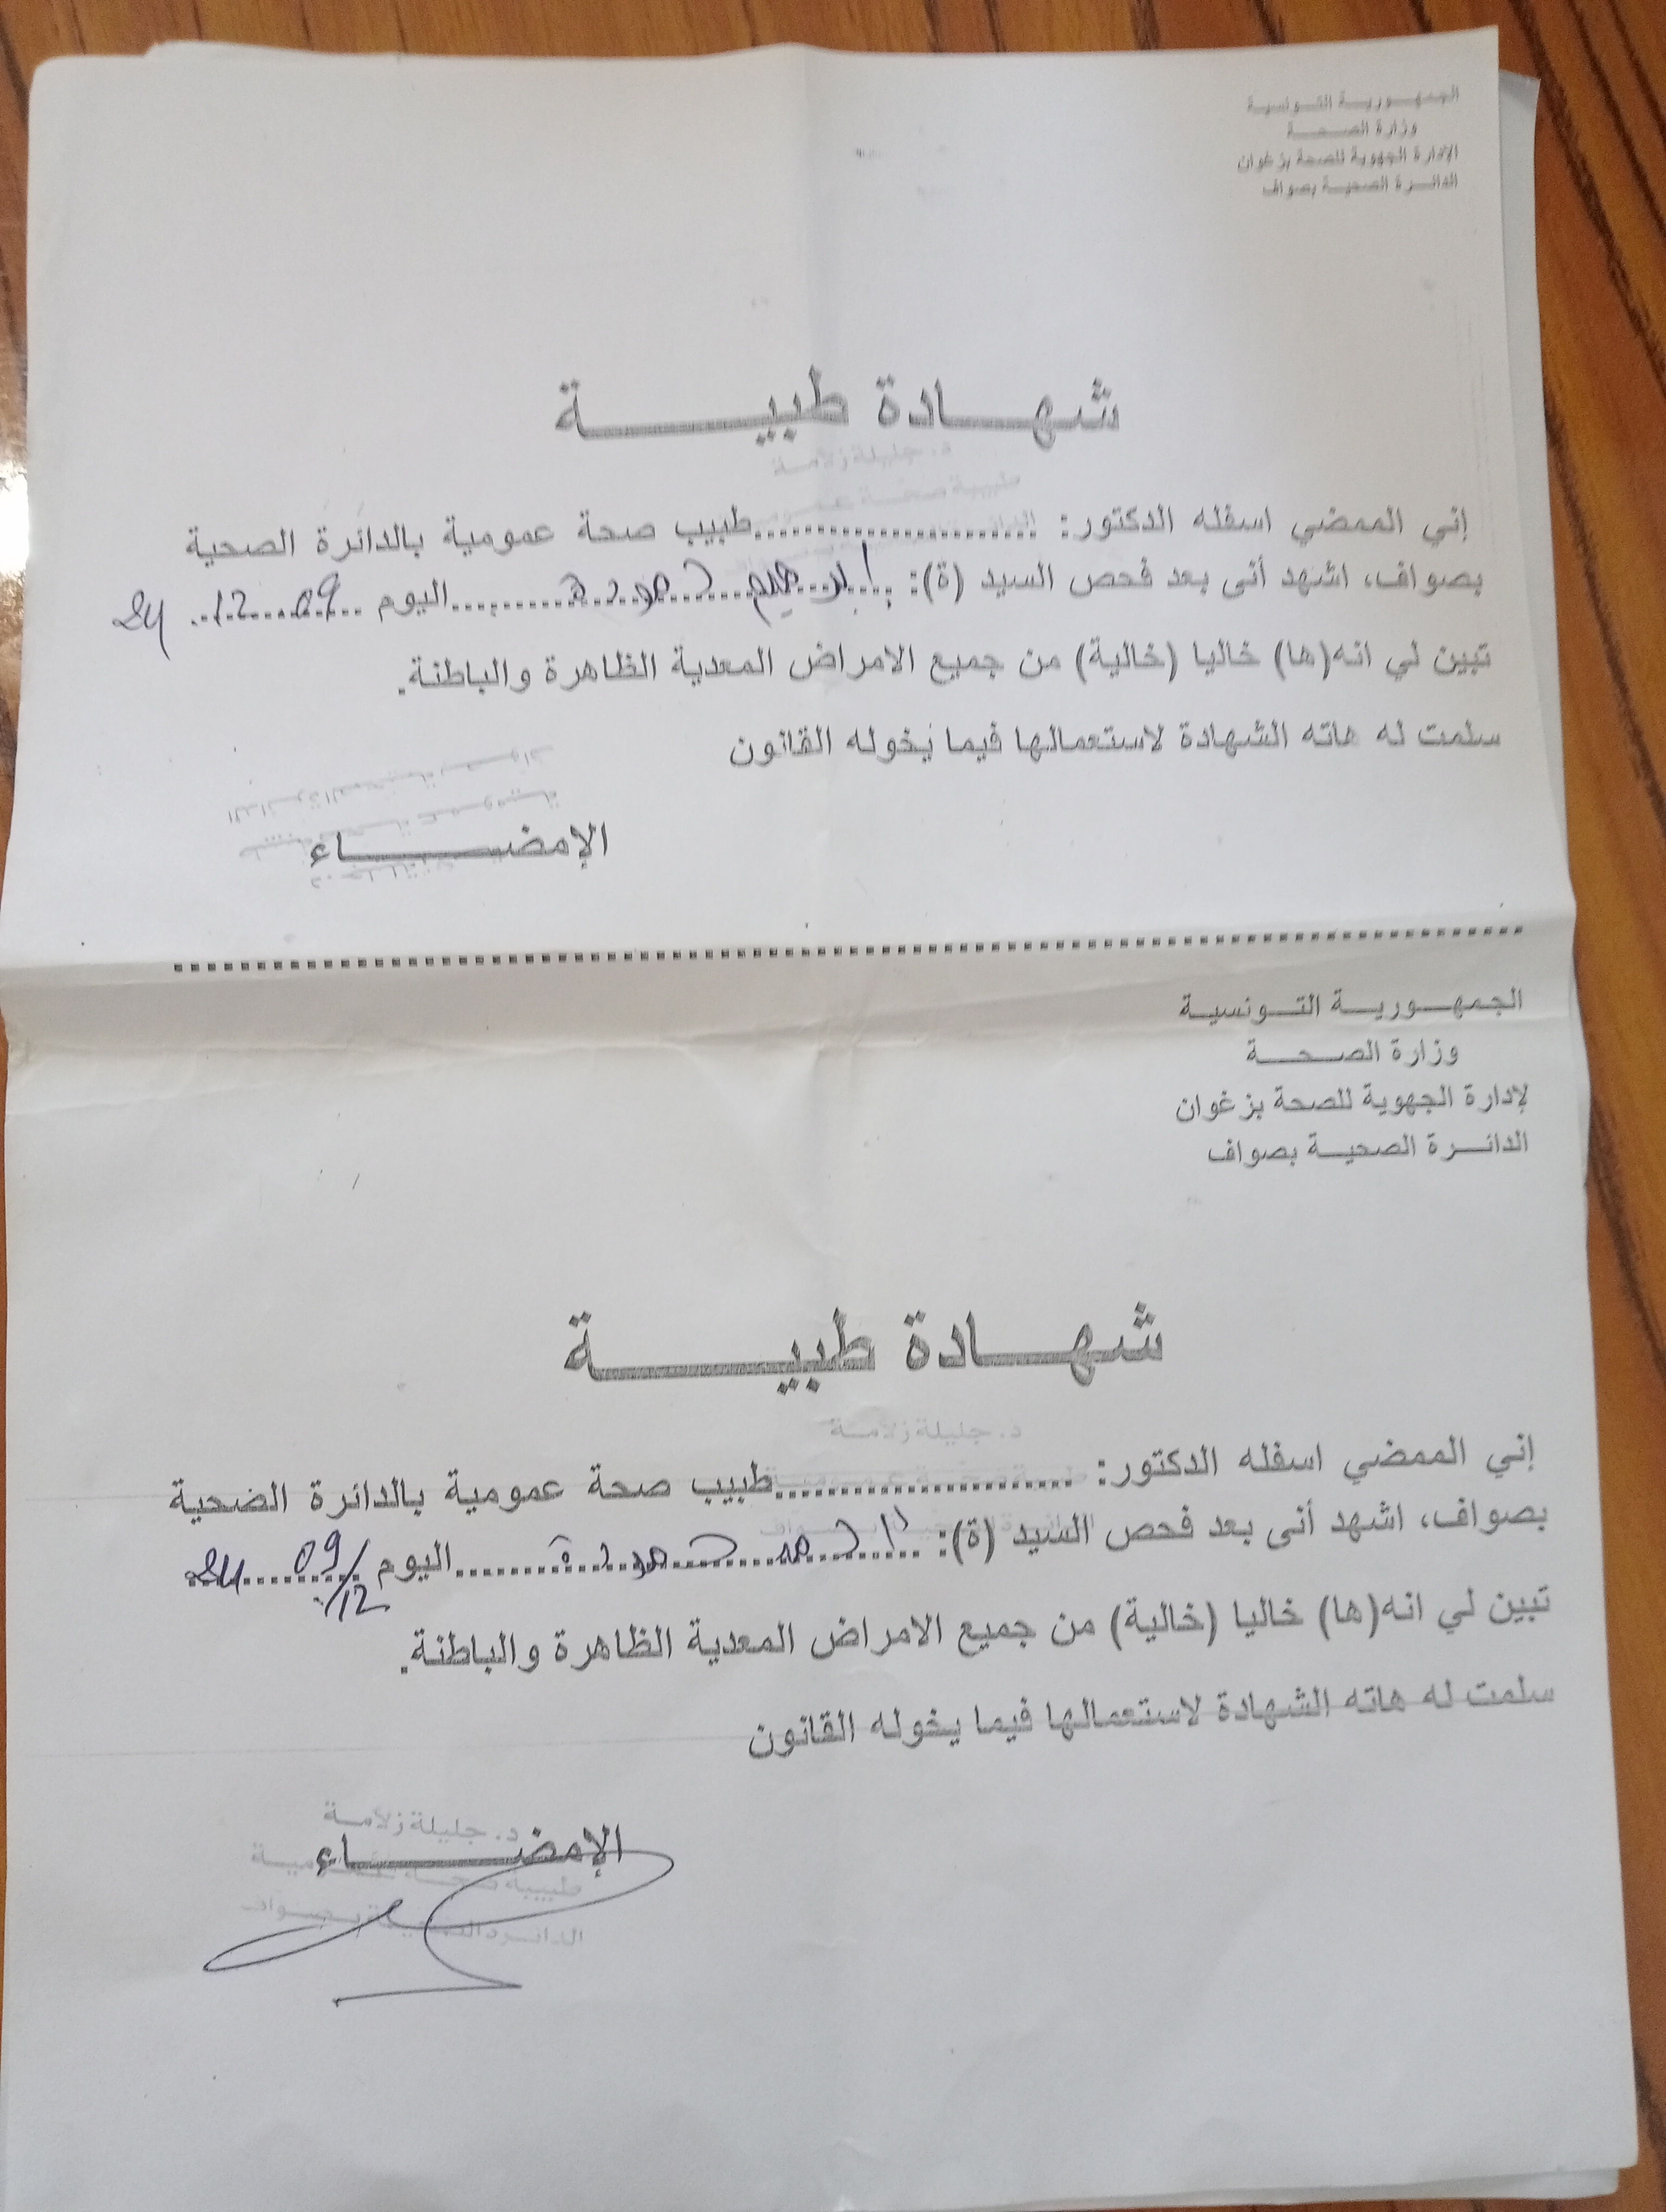 الجمهورية التونسية
وزارة الصحة
الإدارة الجهوية للصحة بزغوان
الدائرة الصحية بصواف
شهادة طبية
د. جليلة زلامة
إني الممضي اسفله الدكتور: ......................طبيب صحة عمومية بالدائرة الصحية
بصواف، اشهد أنى بعد فحص السيد (ة): ابراهيم اليوم 09 12 24
تبين لي انه(ها) خاليا (خالية) من جميع الامراض المعدية الظاهرة والباطنة.
سلمت له هاته الشهادة لاستعمالها فيما يخوله القانون
الدائرة الصحية بصواف
الإمضاء
الجمهورية التونسية
وزارة الصحة
لإدارة الجهوية للصحة بزغوان
الدائرة الصحية بصواف
شهادة طبية
د. جليلة زلامة
إني الممضي اسفله الدكتور: ......................طبيب صحة عمومية بالدائرة الضحية
بصواف، اشهد أنى بعد فحص السيد (ة): اليوم 09/12 24
تبين لي انه(ها) خاليا (خالية) من جميع الامراض المعدية الظاهرة والباطنة.
سلمت له هاته الشهادة لاستعمالها فيما يخوله القانون
د. جليلة زلامة
الإمضاء
طبيبة صحة عمومية
الدائرة الصحية بصواف